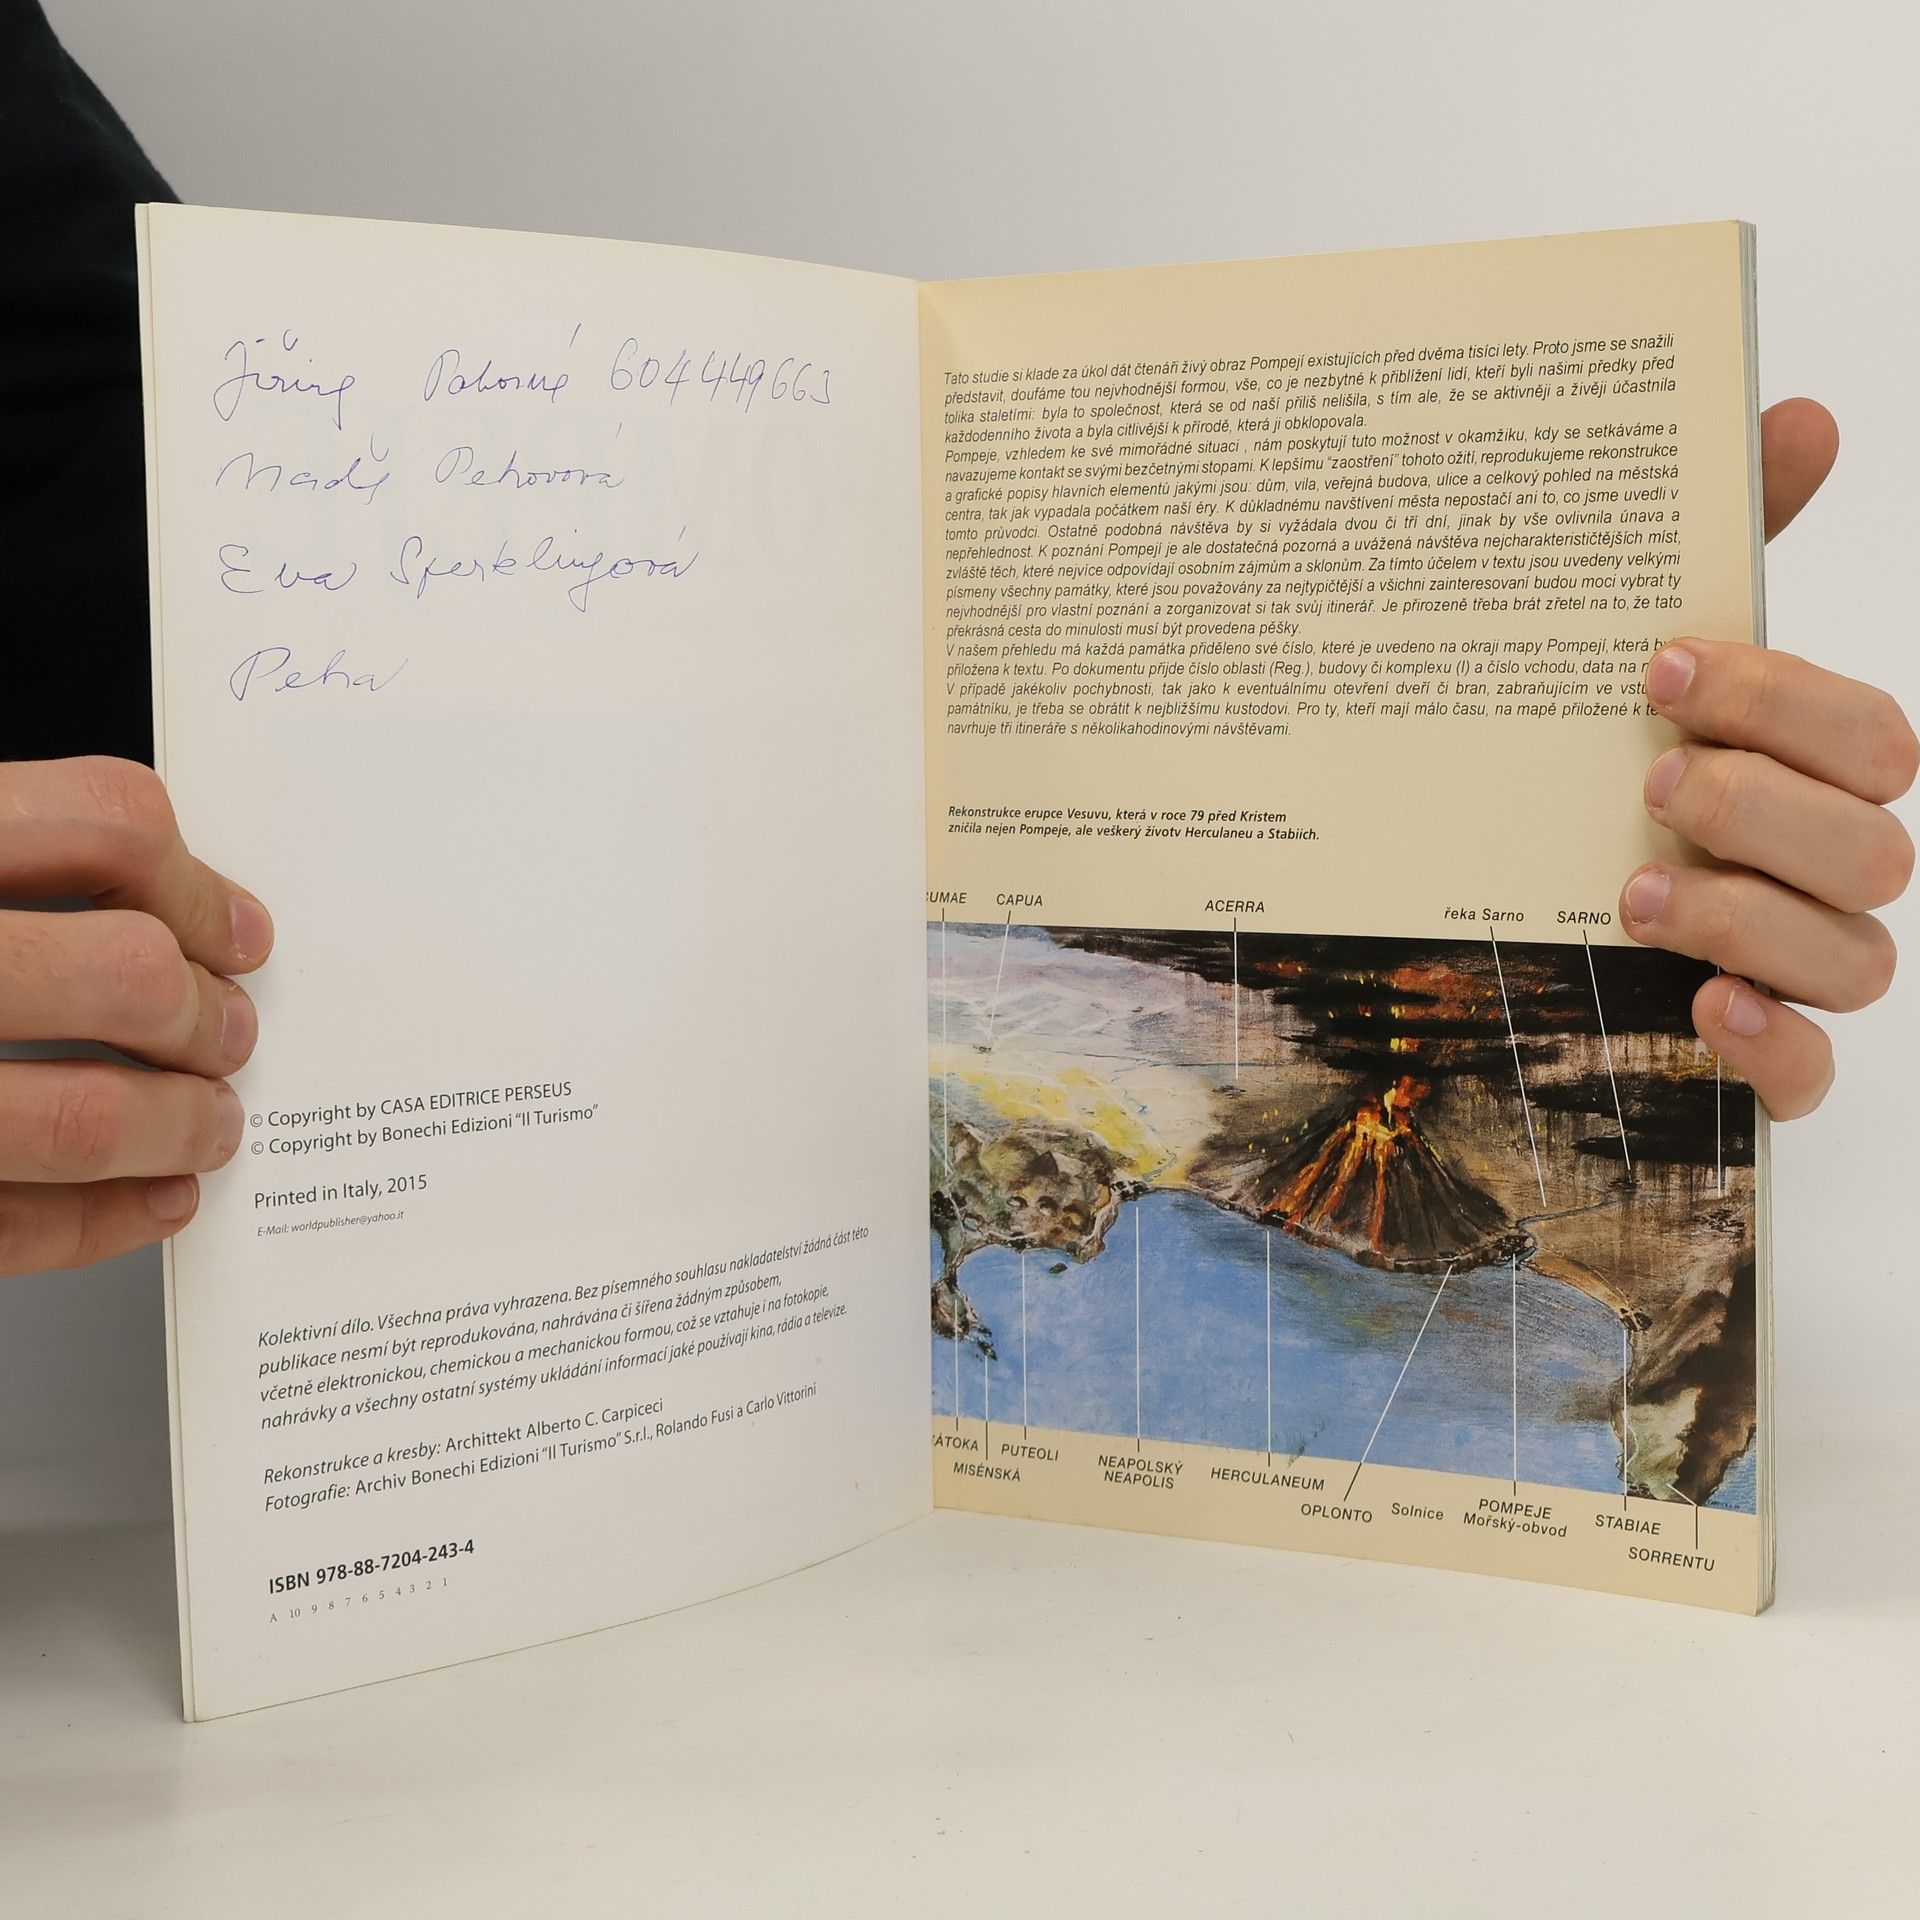 Jiřina Pohorná 604449663
Naďa Petrovová
Eva Sperklingová
Petra
© Copyright by CASA EDITRICE PERSEUS
© Copyright by Bonechi Edizioni “Il Turismo”
Printed in Italy, 2015
E-Mail: worldpublisher@yahoo.it
Kolektivní dílo. Všechna práva vyhrazena. Bez písemného souhlasu nakladatelství žádná část této
publikace nesmí být reprodukována, nahrávána či šířena žádným způsobem,
včetně elektronickou, chemickou a mechanickou formou, což se vztahuje i na fotokopie,
nahrávky a všechny ostatní systémy ukládání informací jaké používají kina, rádia a televize.
Rekonstrukce a kresby: Archittekt Alberto C. Carpiceci
Fotografie: Archiv Bonechi Edizioni “Il Turismo” S.r.l., Rolando Fusi a Carlo Vittorini
ISBN 978-88-7204-243-4
A 10 9 8 7 6 5 4 3 2 1
Tato studie si klade za úkol dát čtenáři živý obraz Pompejí existujících před dvěma tisíci lety. Proto jsme se snažili
představit, doufáme tou nejvhodnější formou, vše, co je nezbytné k přiblížení lidí, kteří byli našimi předky před
tolika staletími: byla to společnost, která se od naší příliš nelišila, s tím ale, že se aktivněji a živěji účastnila
každodenního života a byla citlivější k přírodě, která ji obklopovala.
Pompeje, vzhledem ke své mimořádné situaci , nám poskytují tuto možnost v okamžiku, kdy se setkáváme a
navazujeme kontakt se svými bezčetnými stopami. K lepšímu “zaostření” tohoto ožití, reprodukujeme rekonstrukce
a grafické popisy hlavních elementů jakými jsou: dům, vila, veřejná budova, ulice a celkový pohled na městská
centra, tak jak vypadala počátkem naší éry. K důkladnému navštívení města nepostačí ani to, co jsme uvedli v
tomto průvodci. Ostatně podobná návštěva by si vyžádala dvou či tří dní, jinak by vše ovlivnila únava a
nepřehlednost. K poznání Pompejí je ale dostatečná pozorná a uvážená návštěva nejcharakterističtějších míst,
zvláště těch, které nejvíce odpovídají osobním zájmům a sklonům. Za tímto účelem v textu jsou uvedeny velkými
písmeny všechny památky, které jsou považovány za nejtypičtější a všichni zainteresovaní budou moci vybrat ty
nejvhodnější pro vlastní poznání a zorganizovat si tak svůj itinerář. Je přirozeně třeba brát zřetel na to, že tato
překrásná cesta do minulosti musí být provedena pěšky.
V našem přehledu má každá památka přiděleno své číslo, které je uvedeno na okraji mapy Pompejí, která
přiložena k textu. Po dokumentu přijde číslo oblasti (Reg.), budovy či komplexu (I) a číslo vchodu, data na
V případě jakékoliv pochybnosti, tak jako k eventuálnímu otevření dveří či bran, zabraňujícím ve
památníku, je třeba se obrátit k nejbližšímu kustodovi. Pro ty, kteří mají málo času, na mapě přiložené k
navrhuje tři itineráře s několikahodinovými návštěvami.
Rekonstrukce erupce Vesuvu, která v roce 79 před Kristem
zničila nejen Pompeje, ale veškerý životv Herculaneu a Stabiích.
CUMAE CAPUA ACERRA řeka Sarno SARNO
ÁTOKA
MISÉNSKÁ
PUTEOLI
NEAPOLSKÝ
NEAPOLIS
HERCULANEUM
OPLONTO
Solnice
POMPEJE
Mořský-obvod
STABIAE
SORRENTU